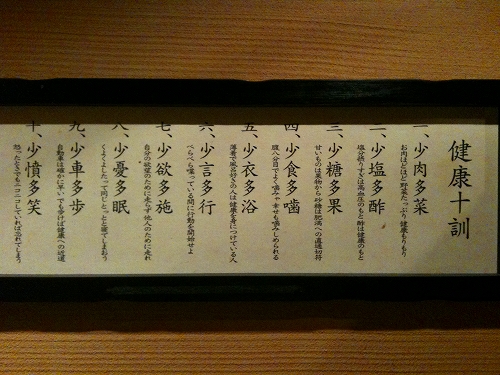 健康十訓
一、少肉多菜
お肉ほどほど野菜たっぷり健康もりもり
二、少塩多酢
塩分摂りすぎは高血圧のもと酢は健康のもと
三、少糖多果
甘いものは果物から砂糖は肥満への直通切符
四、少食多噛
腹八分目でよく噛みゃ幸せも噛みしめられる
五、少衣多浴
薄着で風呂好きの人は健康を身につけている人
六、少言多行
べらべら喋っている間に行動を開始せよ
七、少欲多施
自分の欲望のために走らず他人のために走れ
八、少憂多眠
くよくよしたって同じとっとと寝てしまおう
九、少車多歩
自動車は確かに早いでも歩けば健康への近道
十、少憤多笑
怒ったときでもニコニコしていれば忘れてしまう